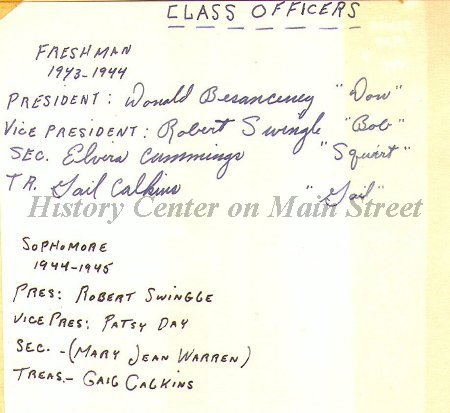 CLASS OFFICERS
FRESHMAN
1943-1944
PRESIDENT: Donald Besanceney "Don"
VICE PRESIDENT: Robert Swingle "Bob"
SEC. Elvira Cummings "Squirt"
TR. Gail Calkins "Gail"
History Center on Main Street
SOPHOMORE
1944-1945
PRES: ROBERT SWINGLE
VICE PRES: PATSY DAY
SEC. - (MARY JEAN WARREN)
TREAS. - GAIL CALKINS